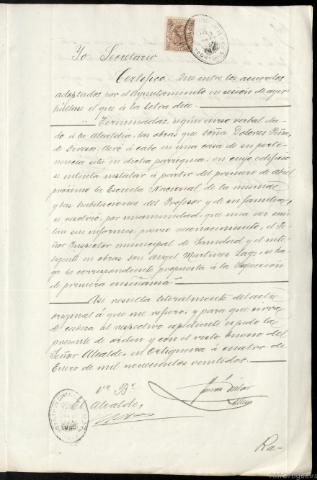 Yo Secretario
Certifico: Que entre los acuerdos
adoptados por el Ayuntamiento en sesión de ayer
hállase el que á la letra dice
Terminadas, según aviso verbal da-
do á la Alcaldía, las obras que doña Dolores
de llevó á cabo en una casa de su perte-
nencia sita en dicha parroquia, en cuyo edificio
se intenta instalar á partir del primero de abril
próximo la Escuela Nacional de la misma
y las habitaciones del Profesor y de su familia,
se acordó, por unanimidad, que una vez emi-
tan sus informes, previo reconocimiento, el Se-
ñor Inspector municipal de Sanidad y el inte-
ligente en obras don Angel Martínez se ha-
ga la correspondiente propuesta á la Inspección
de primera enseñanza
Así resulta literalmente del acta
original á que me refiero, y para que surta
su respectivo expediente expido la
presente de orden y con el visto bueno del
Señor Alcalde, en Ortigueira á cuatro de
Enero de mil novecientos veintidos.
Vº Bº
El Alcalde,
Ra-